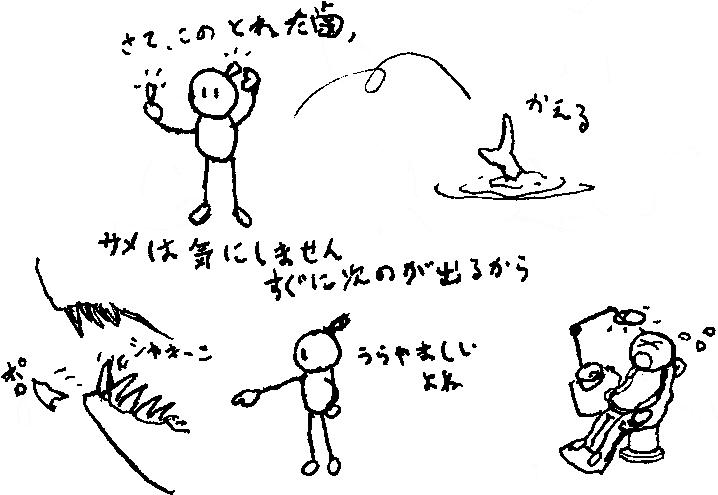 さて、このとれた歯,
かえる
サメは気にしません
すぐに次のが出るから
シャキーン
ポロ
うらやましい
よね